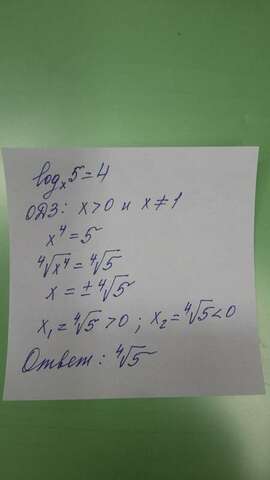 logₓ5=4
ОДЗ: x>0 и x≠1
x⁴=5
⁴√x⁴=⁴√5
x=±⁴√5
x₁=⁴√5>0; x₂=⁴√5<0
Ответ: ⁴√5